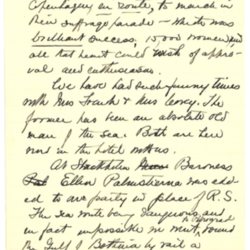 Copenhagen en route, to march in
their Suffrage parade – which was
brilliant success, 15000 women, and
all that heart could wish of appro-
val and enthusiasm.
We have had such funny times
with Mrs & Miss. The
former has been an absolute old
man of the sea. Both are here
now in the hotel with us.
At Stockholm Baroness
Ellen Palmstierna was add-
ed to our party in place of R.S.
The sea route being dangerous and
in fact impossible we went, round
the Gulf of Bothnia by rail a